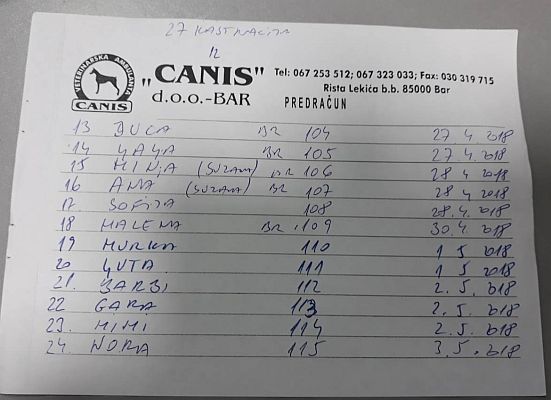 27 KASTRACIJA
12
VETERINARSKA AMBULANTA
CANIS
„CANIS"
d.o.o.-BAR
Tel: 067 253 512; 067 323 033; Fax: 030 319 715
Rista Lekića b.b. 85000 Bar
PREDRAČUN
13 BUCA BR 104 27 4. 2018
14 GAGA BR 105 27 4. 2018
15 MINJA (SUZANA) BR 106 28 4 2018
16 ANA (SUZANA) BR 107 28 4 2018
17 SOFIJA 108 28. 4. 2018
18 MALENA BR. 109 30. 4 2018
19 MURKA 110 1 5 2018
20 GUTA 111 1 5 2018
21. BARBI 112 2. 5. 2018
22 GARA 113 2. 5. 2018
23. MIMI 114 2. 5. 2018
24. NORA 115 3. 5. 2018